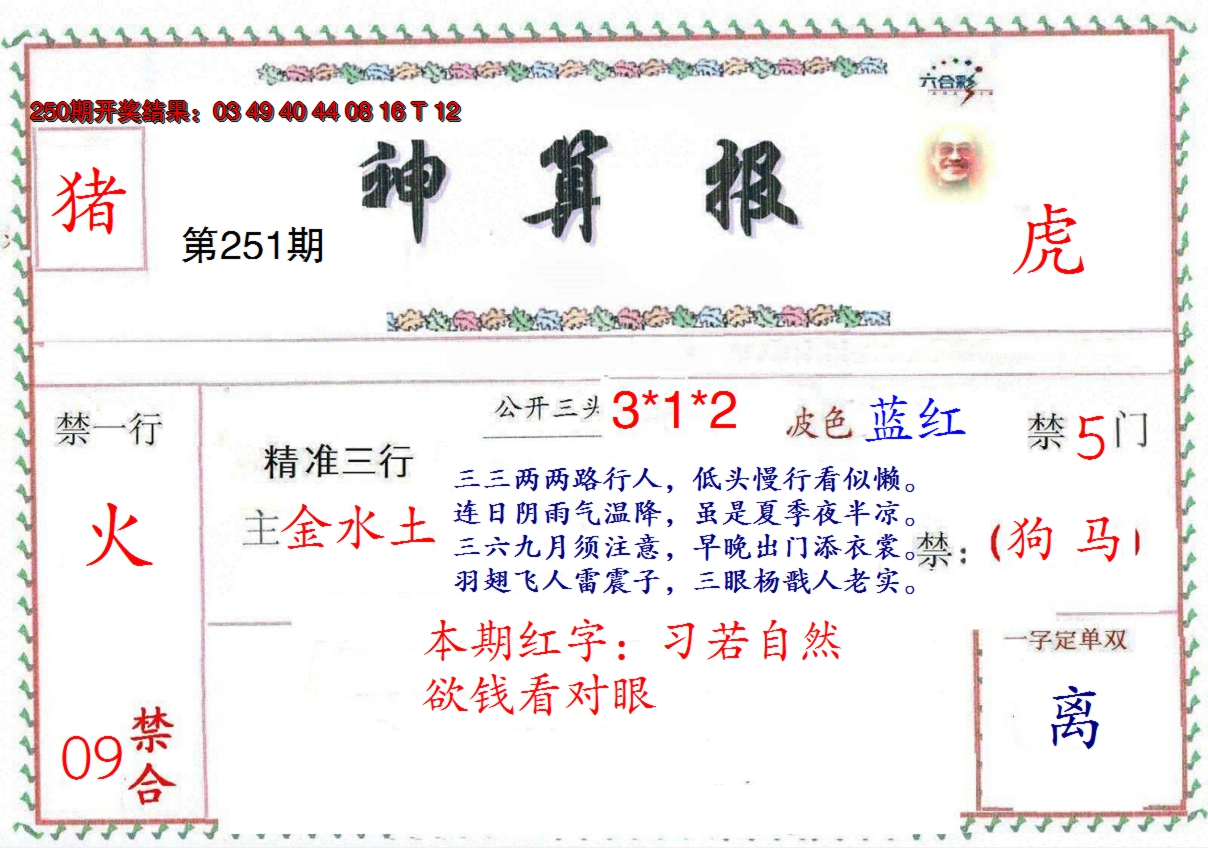 六合彩
250期开奖结果：03 49 40 44 08 16 T 12
神算报
猪
第251期
虎
公开三头 3*1*2
波色 蓝红
禁一行
禁5门
精准三行
主金水土
三三两两路行人，低头慢行看似懒。
连日阴雨气温降，虽是夏季夜半凉。
三六九月须注意，早晚出门添衣裳。
羽翅飞人雷震子，三眼杨戬人老实。
火
禁：(狗 马)
本期红字：习若自然
欲钱看对眼
一字定单双
离
09禁合